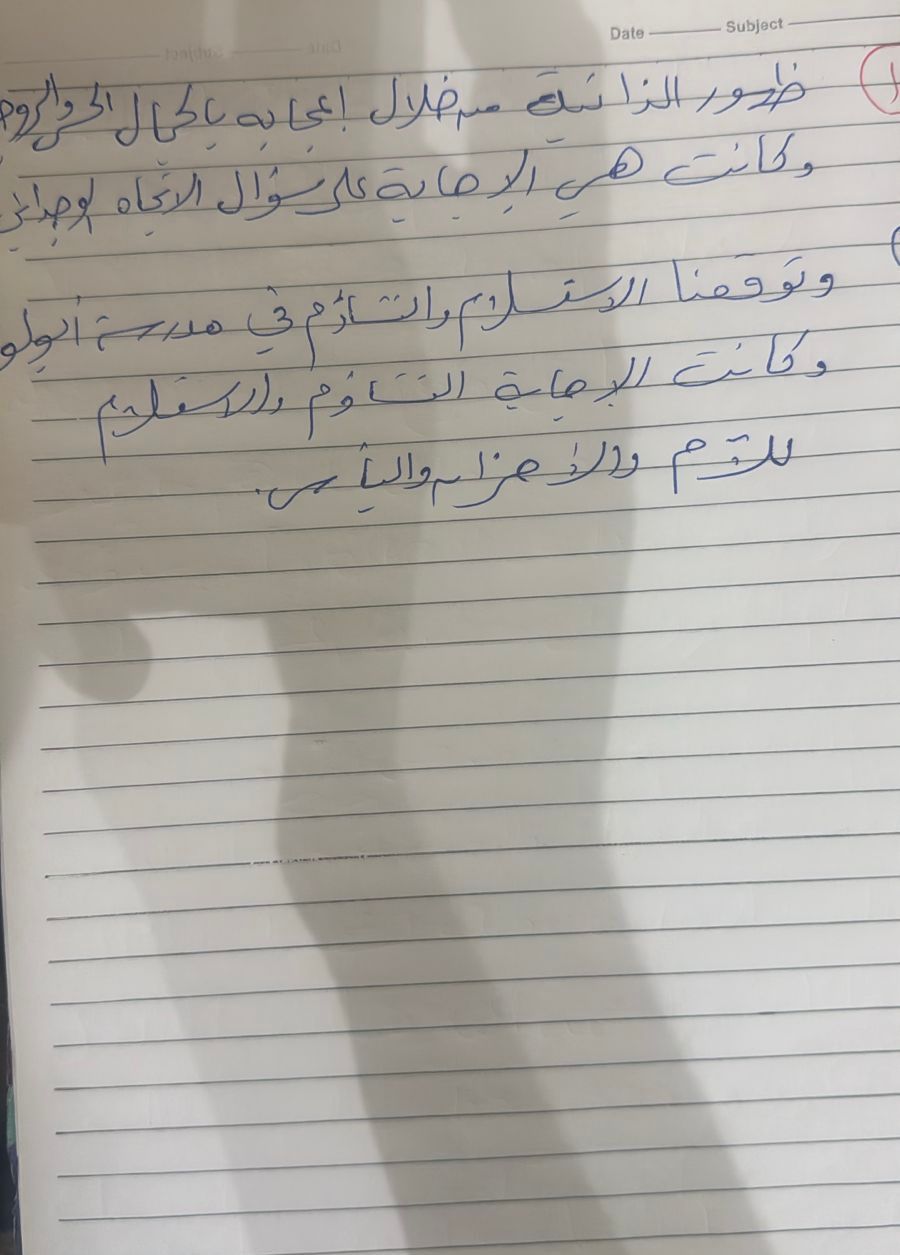 Date Subject
١ ظهور الذاتية من خلال إعجابه بالجمال الحسي والروح
وكانت هي الإجابة على سؤال الاتجاه الوجداني
وتوقعنا الاستسلام والتشاؤم في مدرسة أبولو
وكانت الإجابة التشاؤم والاستسلام
للألم والأحزان واليأس.